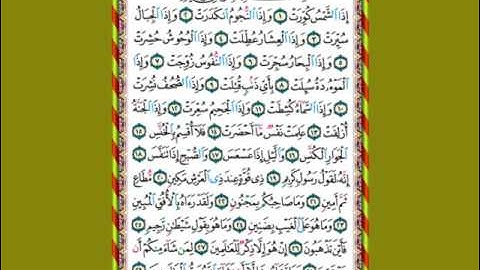 إِذَا الشَّمْسُ كُوِّرَتْ ١ وَإِذَا النُّجُومُ انكَدَرَتْ ٢ وَإِذَا الْجِبَالُ
سُيِّرَتْ ٣ وَإِذَا الْعِشَارُ عُطِّلَتْ ٤ وَإِذَا الْوُحُوشُ حُشِرَتْ
٥ وَإِذَا الْبِحَارُ سُجِّرَتْ ٦ وَإِذَا النُّفُوسُ زُوِّجَتْ ٧ وَإِذَا
الْمَوْءُودَةُ سُئِلَتْ ٨ بِأَيِّ ذَنْبٍ قُتِلَتْ ٩ وَإِذَا الصُّحُفُ نُشِرَتْ
١٠ وَإِذَا السَّمَاءُ كُشِطَتْ ١١ وَإِذَا الْجَحِيمُ سُعِّرَتْ ١٢ وَإِذَا الْجَنَّةُ
أُزْلِفَتْ ١٣ عَلِمَتْ نَفْسٌ مَّا أَحْضَرَتْ ١٤ فَلَا أُقْسِمُ بِالْخُنَّسِ ١٥
الْجَوَارِ الْكُنَّسِ ١٦ وَاللَّيْلِ إِذَا عَسْعَسَ ١٧ وَالصُّبْحِ إِذَا تَنَفَّسَ ١٨
إِنَّهُ لَقَوْلُ رَسُولٍ كَرِيمٍ ١٩ ذِي قُوَّةٍ عِندَ ذِي الْعَرْشِ مَكِينٍ ٢٠ مُّطَاعٍ
ثَمَّ أَمِينٍ ٢١ وَمَا صَاحِبُكُم بِمَجْنُونٍ ٢٢ وَلَقَدْ رَءَاهُ بِالْأُفُقِ الْمُبِينِ
٢٣ وَمَا هُوَ عَلَى الْغَيْبِ بِضَنِينٍ ٢٤ وَمَا هُوَ بِقَوْلِ شَيْطَانٍ رَّجِيمٍ ٢٥
فَأَيْنَ تَذْهَبُونَ ٢٦ إِنْ هُوَ إِلَّا ذِكْرٌ لِّلْعَالَمِينَ ٢٧ لِمَن شَاءَ مِنكُمْ أَن